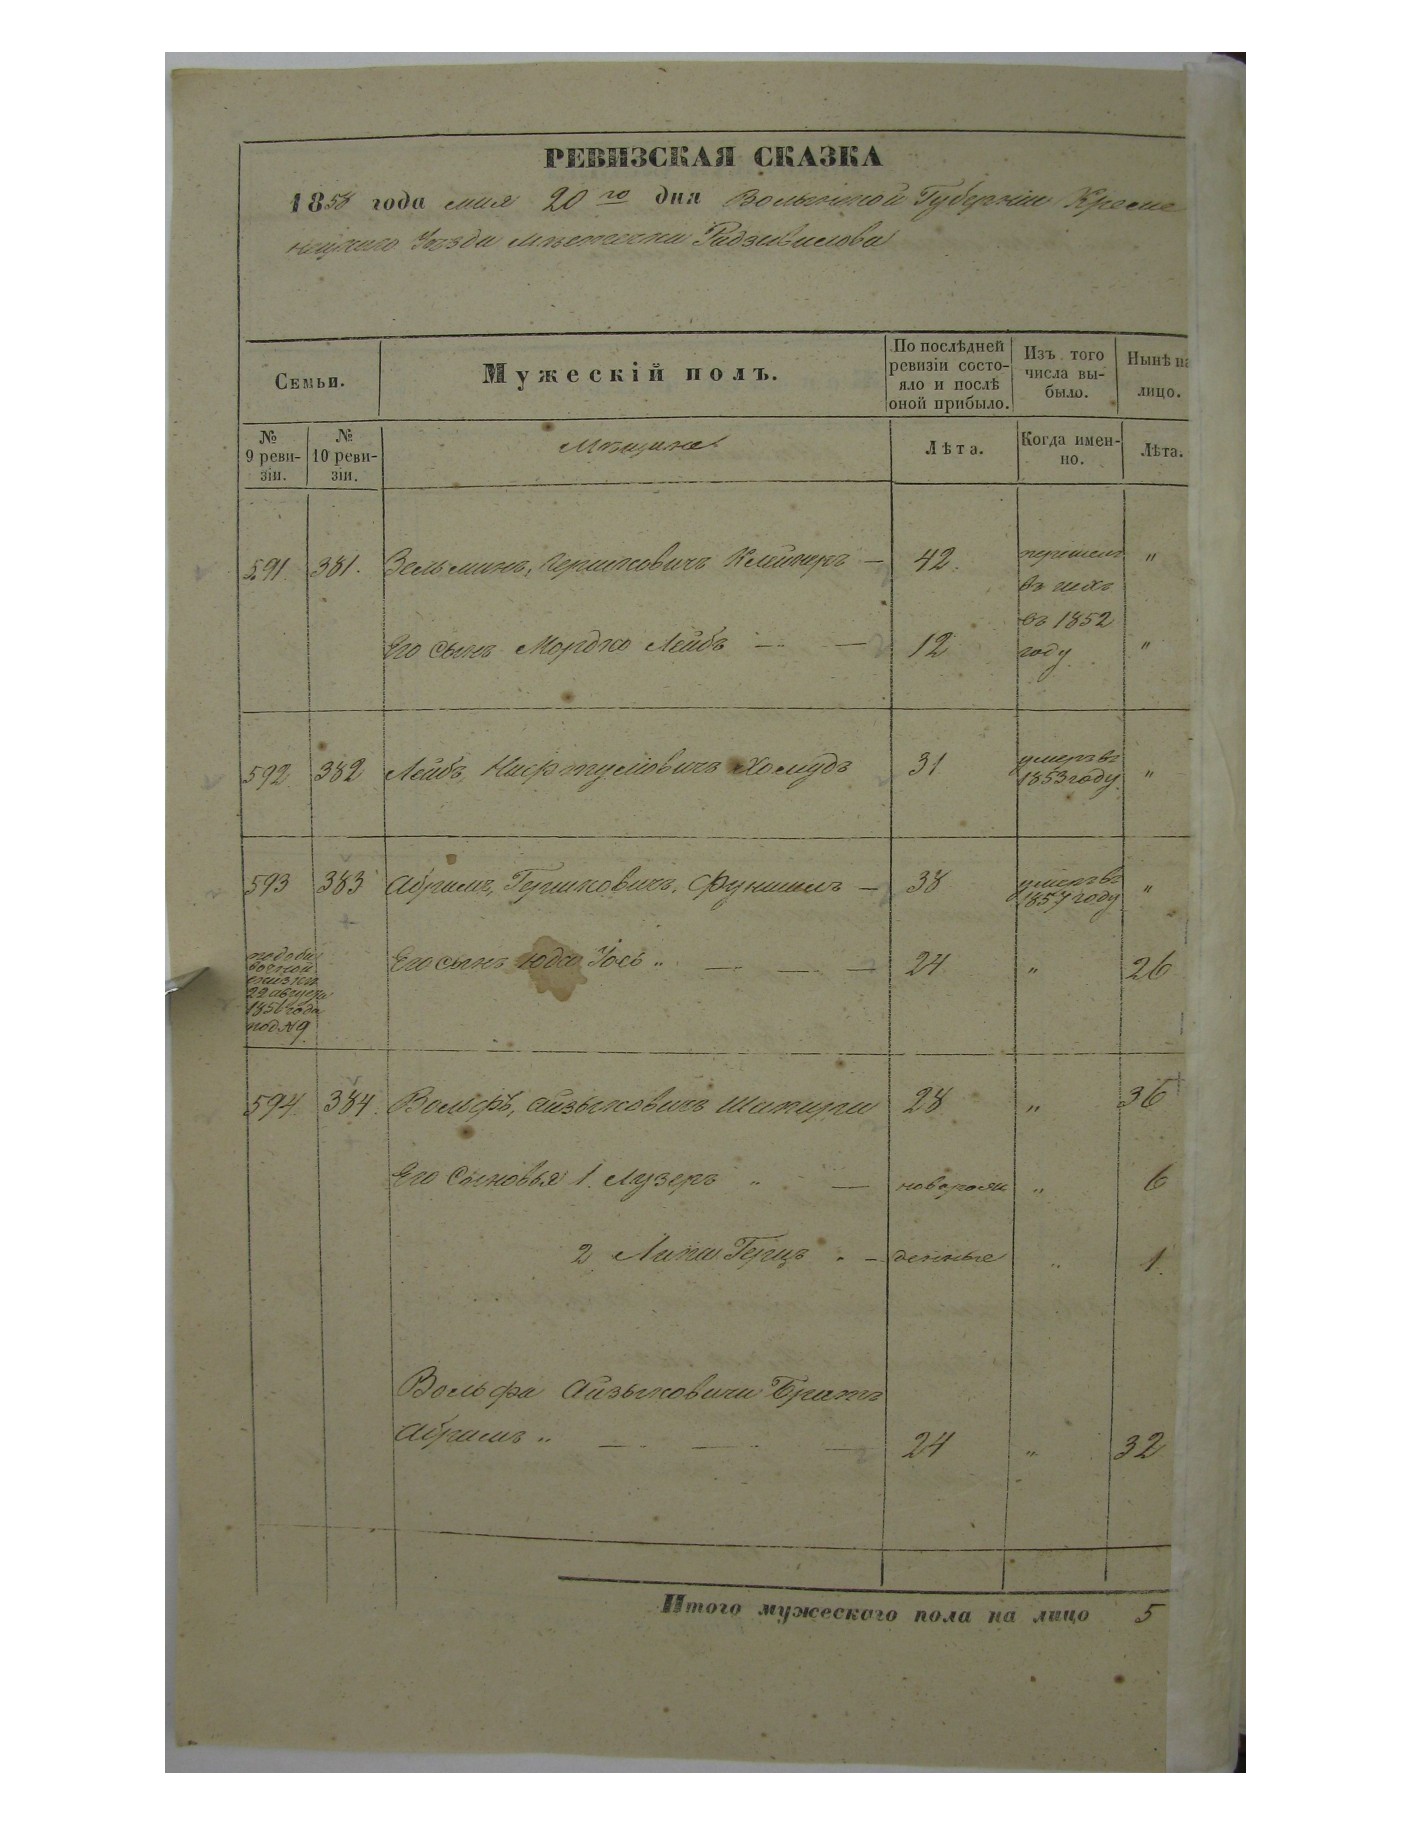 РЕВИЗСКАЯ СКАЗКА
1858 года мая 20го дня Волынской Губерніи Креме
нецкаго Уѣзда мѣстечка Радзивилова
Семьи.
Мужескій полъ.
По послѣдней ревизіи состояло и послѣ оной прибыло.
Изъ того числа выбыло.
Нынѣ на лицо.
№ 9 ревизіи.
№ 10 ревизіи.
Мѣщане
Лѣта.
Когда именно.
Лѣта.
591. 381. Зельманъ, Гершковичъ Клейнеръ — 42. "
въ 1852
Его сынъ Мордко Лейбъ — — 12 году "
592 382 Лейбъ Нафтуловичъ Холмудъ 31 умеръ въ 1853 году "
593 383 Абрамъ, Гершковичъ, — 38 умеръ въ 1857 году "
Его сынъ Юда Іось " — — — 24 " 26
22 августа
1850 года
под № 9
594. 384. Вольфъ, Айзыковичъ Шапира 28 " 36
Его Сыновья 1. Лузеръ " — новорож " 6
2 Герцъ " — денные " 1.
Вольфа Айзыковича Братъ
Абрамъ " — — — 24 " 32
Итого мужескаго пола на лицо 5